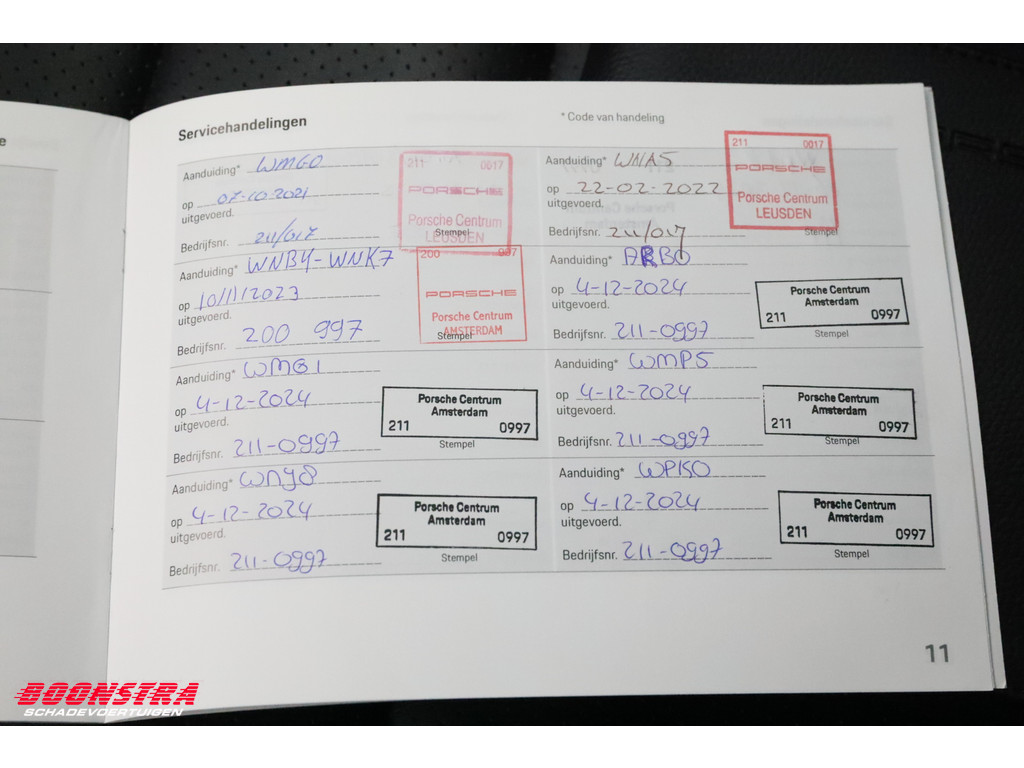 Servicehandelingen
* Code van handeling
Aanduiding* WMG0
op 07-10-2021
uitgevoerd.
Bedrijfsnr. 211/017
211 0017
PORSCHE
Porsche Centrum
LEUSDEN
Stempel
Aanduiding* WNA5
op 22-02-2022
uitgevoerd.
Bedrijfsnr. 211/017
211 0017
PORSCHE
Porsche Centrum
LEUSDEN
Stempel
Aanduiding* WNB4-WNK7
op 10/11/2023
uitgevoerd.
Bedrijfsnr. 200 997
200 997
PORSCHE
Porsche Centrum
AMSTERDAM
Stempel
Aanduiding* ARB0
op 4-12-2024
uitgevoerd.
Bedrijfsnr. 211-0997
Porsche Centrum
Amsterdam
211 0997
Stempel
Aanduiding* WMG1
op 4-12-2024
uitgevoerd.
Bedrijfsnr. 211-0997
Porsche Centrum
Amsterdam
211 0997
Stempel
Aanduiding* WMP5
op 4-12-2024
uitgevoerd.
Bedrijfsnr. 211-0997
Porsche Centrum
Amsterdam
211 0997
Stempel
Aanduiding* WNY8
op 4-12-2024
uitgevoerd.
Bedrijfsnr. 211-0997
Porsche Centrum
Amsterdam
211 0997
Stempel
Aanduiding* WPK0
op 4-12-2024
uitgevoerd.
Bedrijfsnr. 211-0997
Porsche Centrum
Amsterdam
211 0997
Stempel
11
BOONSTRA
SCHADEVOERTUIGEN